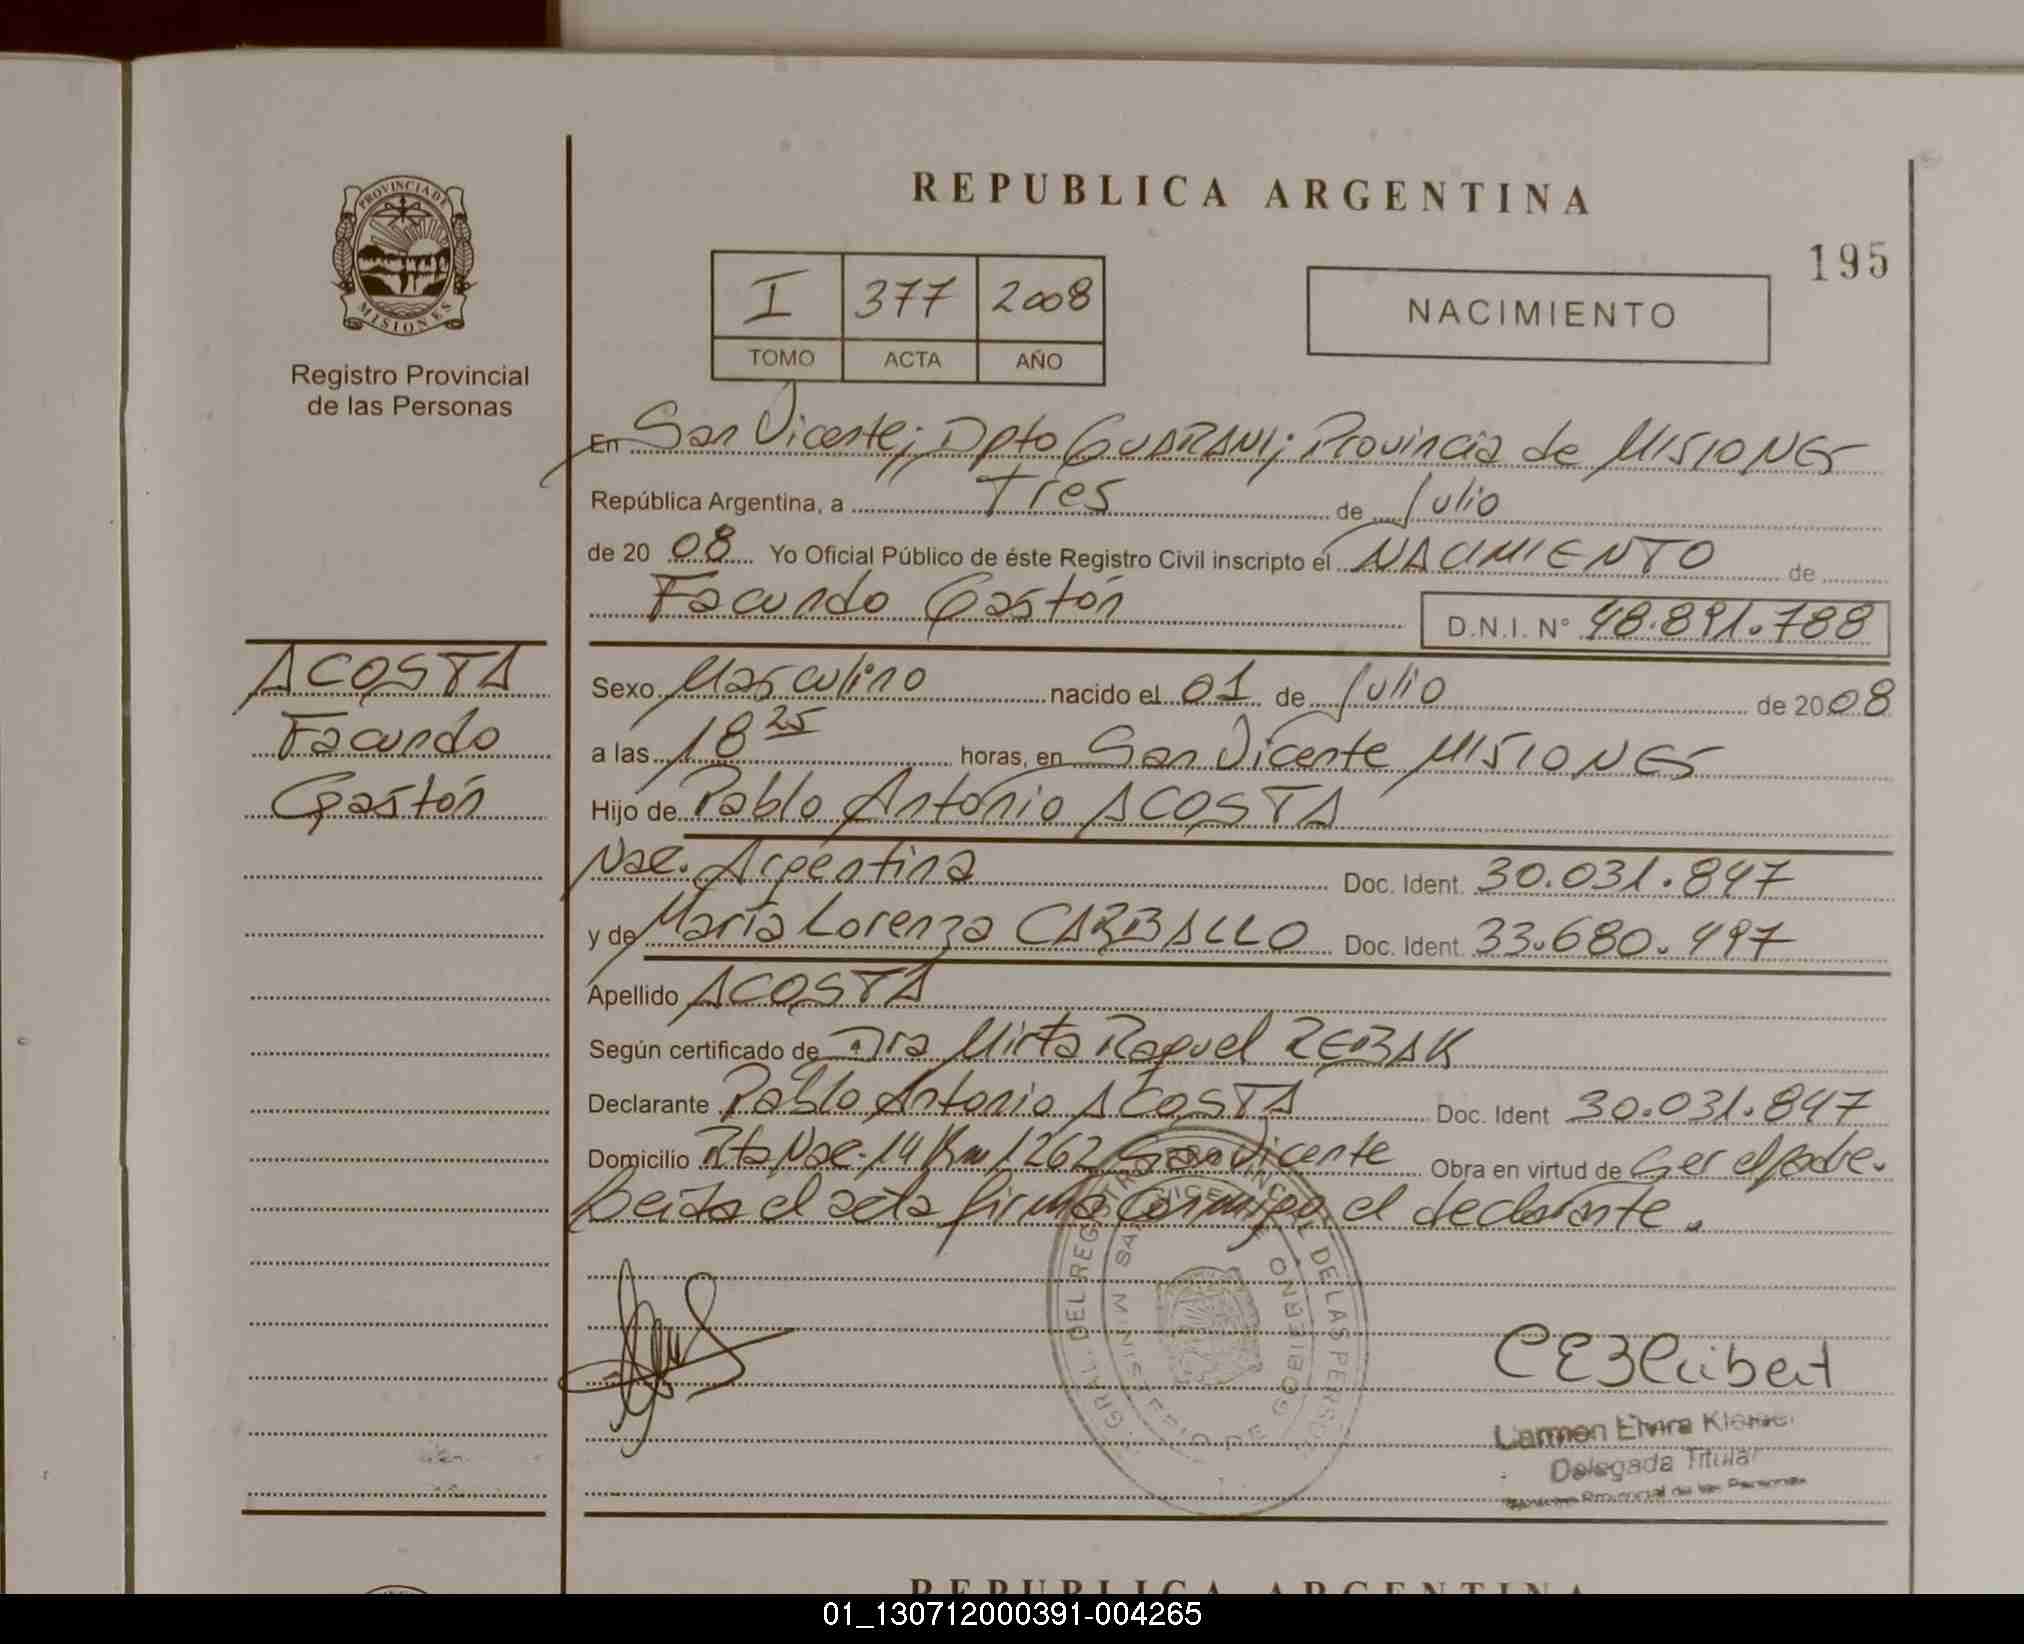 PROVINCIA DE
MISIONES
Registro Provincial
de las Personas
REPUBLICA ARGENTINA
195
I 377 2008
TOMO ACTA AÑO
NACIMIENTO
En San Vicente; Dpto GUARANI; Provincia de MISIONES
República Argentina, a Tres de Julio
de 2008 Yo Oficial Público de éste Registro Civil inscripto el NACIMIENTO de
Facundo Gastón D.N.I. N° 48.891.788
ACOSTA
Facundo
Gastón
Sexo Masculino nacido el 01 de Julio de 2008
a las 18 25 horas, en San Vicente MISIONES
Hijo de Pablo Antonio ACOSTA
Nac. Argentina Doc. Ident. 30.031.847
y de María Lorenza CARBALLO Doc. Ident. 33.680.497
Apellido ACOSTA
Según certificado de Dra Mirta Raquel REBAK
Declarante Pablo Antonio ACOSTA Doc. Ident 30.031.847
Domicilio Rta Nac. 14 Km 1262 San Vicente Obra en virtud de Ser el padre.
Leída el acta firma conmigo el declarante.
GRAL. DEL REGISTRO PROVINCIAL DE LAS PERSONAS
MINISTERIO DE GOBIERNO
Carmen Elvira
Delegada Titular
Provincial de las Personas
REPUBLICA ARGENTINA
01_130712000391-004265